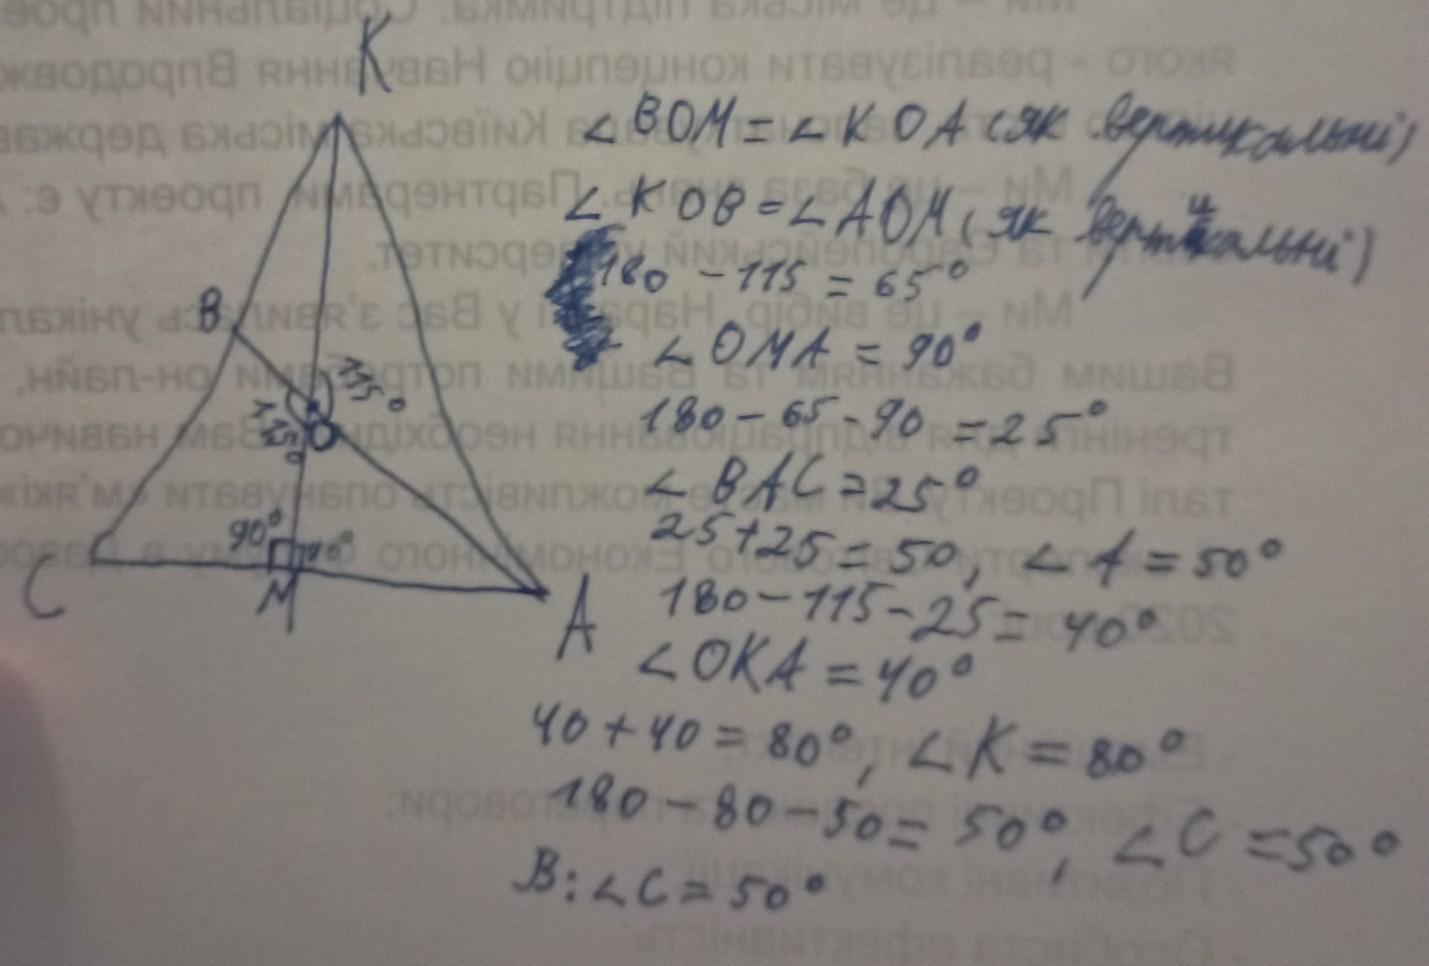 K
∠BOM = ∠KOA (як вертикальні)
∠KOB = ∠AOM (як вертикальні)
180 - 115 = 65°
B
∠OMA = 90°
115°
115°
O
180 - 65 - 90 = 25°
∠BAC = 25°
90°
90°
25 + 25 = 50, ∠A = 50°
C
M
A
180 - 115 - 25 = 40°
∠OKA = 40°
40 + 40 = 80°, ∠K = 80°
180 - 80 - 50 = 50°, ∠C = 50°
В: ∠C = 50°